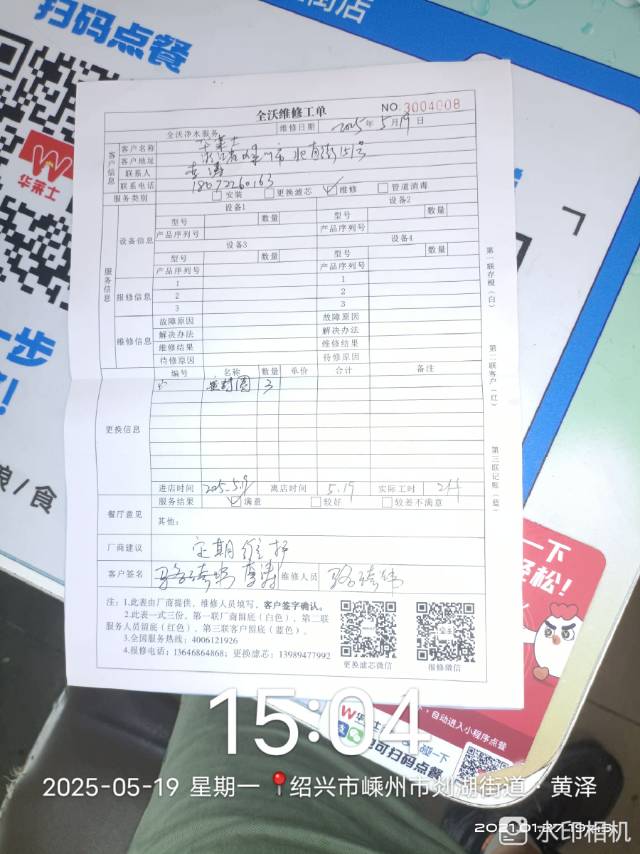 扫码点餐
街店
华莱士
一步
!
粮/食
全沃维修工单
NO 3004008
全沃净水服务
维修日期 2025年5月19日
客户信息
客户名称 华莱士
客户地址
联系人 李涛
联系电话 18072260163
服务类别 安装 更换滤芯 维修 管道消毒
服务信息
设备信息
设备1 设备2
型号 数量 型号 数量
产品序列号 产品序列号
设备3 设备4
型号 数量 型号 数量
产品序列号 产品序列号
报修信息
1 1
2 2
3 3
维修信息
故障原因 故障原因
解决办法 解决办法
维修结果 维修结果
待修原因 待修原因
更换信息
编号 名称 数量 单价 合计 备注
密封圈 3
进店时间 2025.5.19 离店时间 5.19 实际工时
餐厅意见
服务结果 满意 较好 较差不满意
其他:
厂商建议 定期维护
客户签名 维修人员
注:1.此表由厂商提供,维修人员填写,客户签字确认。
2.此表一式三份,第一联厂商留底(白色),第二联
服务人员留底(红色),第三联客户留底(蓝色)。
3.全国服务热线:4006121926
4.报修电话:13646864868;更换滤芯:13989477992
更换滤芯微信
报修微信
第一联存根(白)
第二联客户(红)
第三联记账(蓝)
一下
轻松!
华莱士
碰一下
自动进入小程序点餐
也可扫码点餐
15:04
2025-05-19 星期一 绍兴市嵊州市剡湖街道·黄泽
水印相机